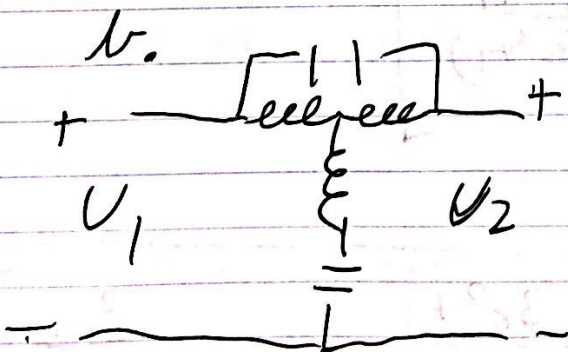 b.
+ +
U₁ U₂
- -